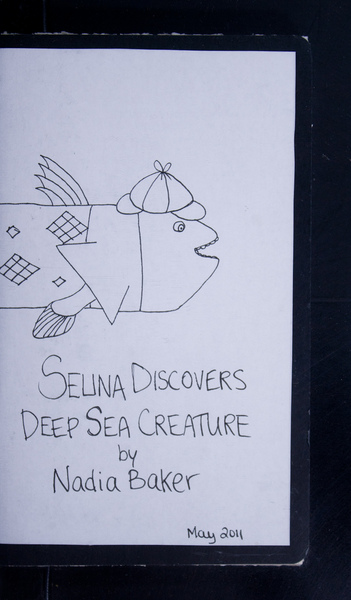 SELINA DISCOVERS
DEEP SEA CREATURE
by
Nadia Baker
May 2011